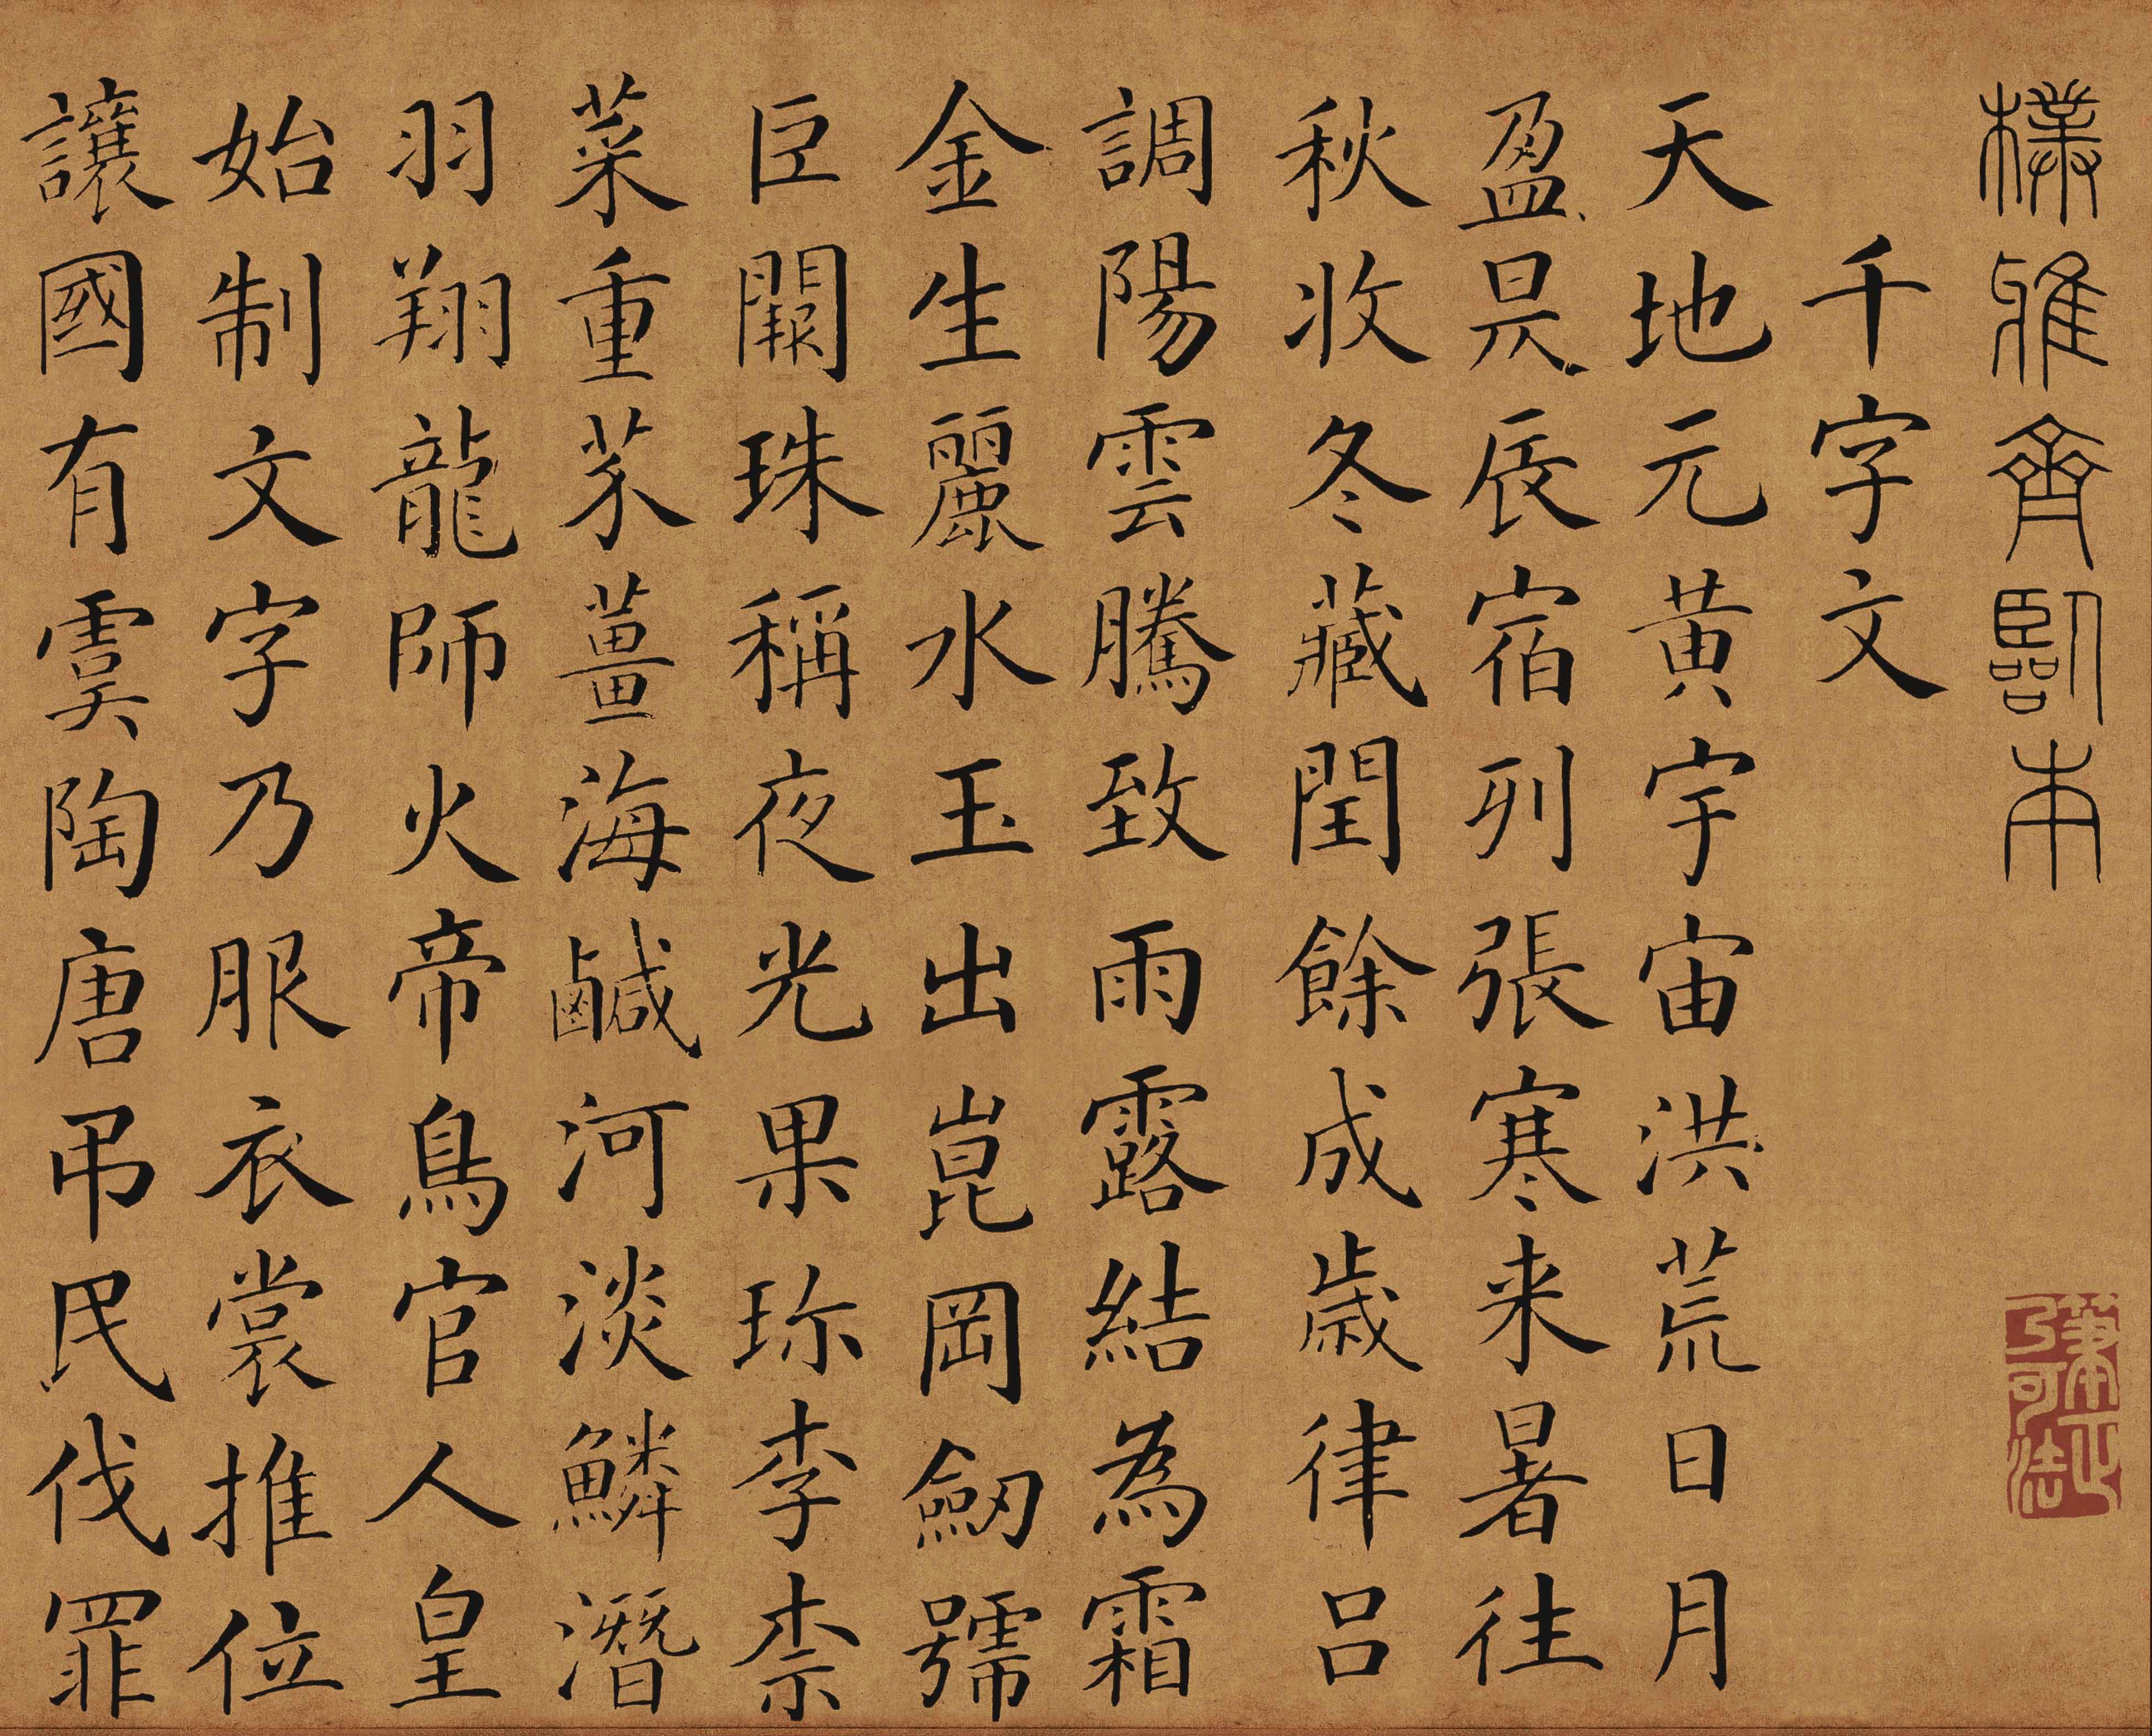 樸雅齋臨本
筆正乃可法
千字文
天地元黃宇宙洪荒日月
盈昃辰宿列張寒来暑往
秋收冬藏閏餘成歲律呂
調陽雲騰致雨露結為霜
金生麗水玉出崑岡劒號
巨闕珠稱夜光果珎李柰
菜重芥薑海鹹河淡鱗潛
羽翔龍師火帝鳥官人皇
始制文字乃服衣裳推位
讓國有虞陶唐吊民伐罪